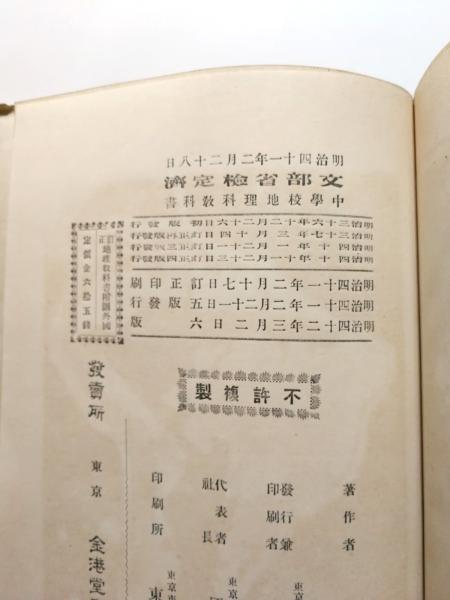 明治四十一年二月二十八日
文部省檢定濟
中學校地理科敎科書
明治三十六年十二月二十六日初版發行
明治三十七年三月十四日訂正再版發行
明治四十年一月二十一日訂正三版發行
明治四十年十一月二十三日訂正四版發行
明治四十一年二月十七日訂正印刷
明治四十一年二月二十一日五版發行
明治四十二年三月二日六版
訂正地理敎科書附圖外國
定價金六拾五錢
不許複製
著作者
發行兼
印刷者
東京
代表者
社長
印刷所 東
發賣所 東京 金港堂